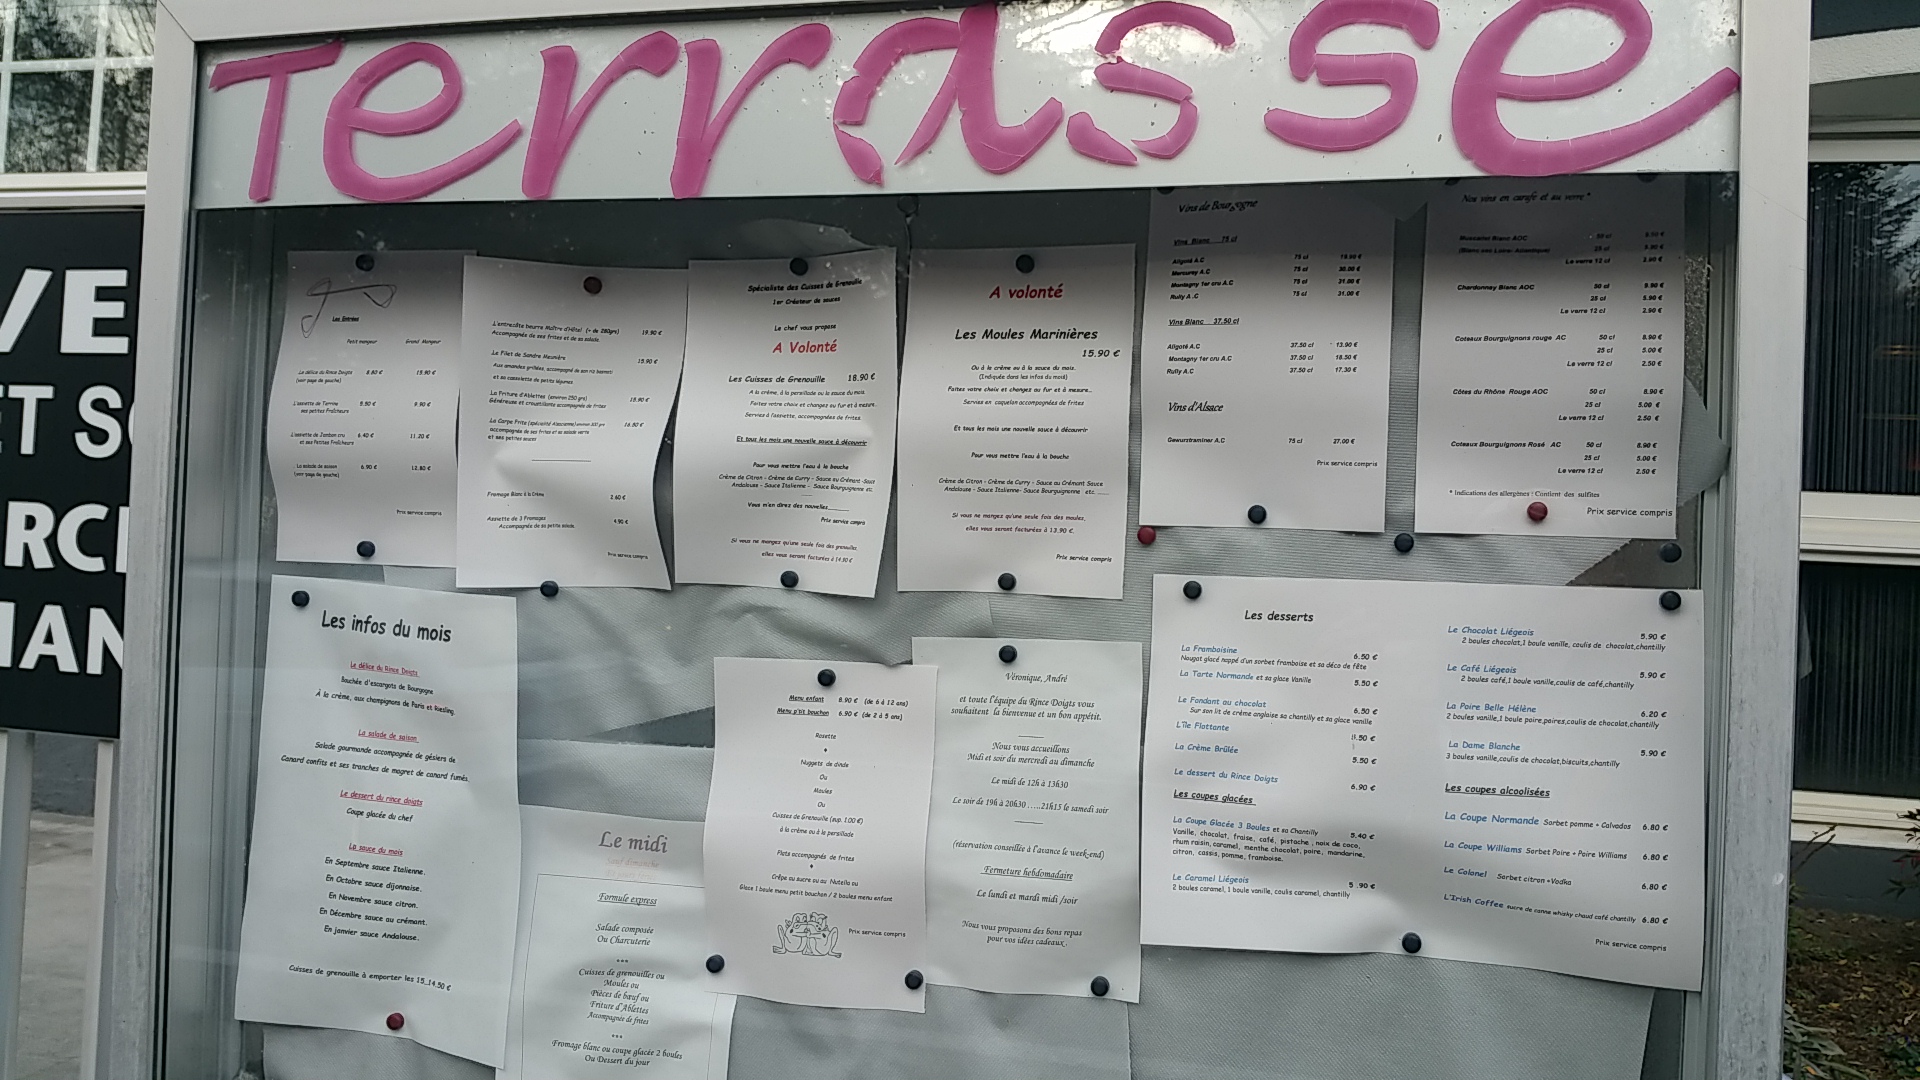 Terrasse
VE
ET SO
RCH
MAN
Les Entrées
Petit mangeur Grand Mangeur
Le délice du Rince Doigts 8.80 € 15.90 €
(voir page de gauche)
L'assiette de Terrine 5.50 € 9.90 €
et ses petites Fraîcheurs
L'assiette de Jambon cru 6.40 € 11.20 €
et ses Petites Fraîcheurs
La salade de saison 6.90 € 12.80 €
(voir page de gauche)
Prix service compris
L'entrecôte beurre Maître d'Hôtel (+ de 280grs) 19.90 €
Accompagnée de ses frites et de sa salade.
Le Filet de Sandre Meunière 15.90 €
Aux amandes grillées, accompagné de son riz basmati
et sa cassolette de petits légumes
La Friture d'Ablettes (environ 250 grs) 18.90 €
Généreuse et croustillante accompagnée de frites
La Carpe Frite (spécialité Alsacienne) environ 300 grs 16.80 €
accompagnée de ses frites et sa salade verte
et ses petites sauces
Fromage Blanc à la Crème 3.60 €
Assiette de 3 Fromages 4.90 €
Accompagnée de sa petite salade
Prix service compris
Spécialiste des Cuisses de Grenouille
1er Créateur de sauces
Le chef vous propose
A Volonté
Les Cuisses de Grenouille 18.90 €
A la crème, à la persillade ou la sauce du mois.
Faites votre choix et changez au fur et à mesure..
Servies à l'assiette, accompagnées de frites.
Et tous les mois une nouvelle sauce à découvrir
Pour vous mettre l'eau à la bouche
Crème de Citron - Crème de Curry - Sauce au Crémant -Sauce
Andalouse - Sauce Italienne - Sauce Bourguignonne etc.
Vous m'en direz des nouvelles
Prix service compris
Si vous ne mangez qu'une seule fois des grenouilles
elles vous seront facturées à 14.90 €
A volonté
Les Moules Marinières
15.90 €
Ou à la crème ou à la sauce du mois.
(Indiquée dans les infos du mois)
Faites votre choix et changez au fur et à mesure...
Servies en caquelon accompagnées de frites
Et tous les mois une nouvelle sauce à découvrir
Pour vous mettre l'eau à la bouche
Crème de Citron - Crème de Curry - Sauce au Crémant Sauce
Andalouse - Sauce Italienne- Sauce Bourguignonne etc.
Si vous ne mangez qu'une seule fois des moules,
elles vous seront facturées à 13.90 €.
Prix service compris
Vins de Bourgogne
Vins Blanc 75 cl
Aligoté A.C 75 cl 19.90 €
Mercurey A.C 75 cl 30.00 €
Montagny 1er cru A.C 75 cl 31.00 €
Rully A.C 75 cl 31.00 €
Vins Blanc 37.50 cl
Aligoté A.C 37.50 cl 13.90 €
Montagny 1er cru A.C 37.50 cl 18.50 €
Rully A.C 37.50 cl 17.30 €
Vins d'Alsace
Gewurstraminer A.C 75 cl 27.00 €
Prix service compris
Nos vins en carafe et au verre *
Muscadet Blanc AOC 50 cl 9.50 €
25 cl
Le verre 12 cl
Chardonnay Blanc AOC 50 cl 9.90 €
25 cl 5.90 €
Le verre 12 cl 2.90 €
Coteaux Bourguignons rouge AC 50 cl 8.90 €
25 cl 5.00 €
Le verre 12 cl 2.50 €
Côtes du Rhône Rouge AOC 50 cl 8.90 €
25 cl 5.00 €
Le verre 12 cl 2.50 €
Coteaux Bourguignons Rosé AC 50 cl 8.90 €
25 cl 5.00 €
Le verre 12 cl 2.50 €
* Indications des allergènes : Contient des sulfites
Prix service compris
Les infos du mois
Le délice du Rince Doigts
Bouchée d'escargots de Bourgogne
À la crème, aux champignons de Paris et Riesling.
La salade de saison
Salade gourmande accompagnée de gésiers de
Canard confits et ses tranches de magret de canard fumés.
Le dessert du rince doigts
Coupe glacée du chef
La sauce du mois
En Septembre sauce Italienne.
En Octobre sauce dijonnaise.
En Novembre sauce citron.
En Décembre sauce au crémant.
En janvier sauce Andalouse.
Cuisses de grenouille à emporter les 15..14.50 €
Le midi
Sauf dimanche
Formule express
Salade composée
Ou Charcuterie
***
Cuisses de grenouilles ou
Moules ou
Pièces de bœuf ou
Friture d'Ablettes
Accompagnée de frites
***
Fromage blanc ou coupe glacée 2 boules
Ou Dessert du jour
Menu enfant 8.90 € (de 6 à 12 ans)
Menu p'tit bouchon 6.90 € (de 2 à 5 ans)
Rosette
Nuggets de dinde
Ou
Moules
Ou
Cuisses de Grenouille (sup. 1.00 €)
à la crème ou à la persillade
Plats accompagnés de frites
Crêpe au sucre ou au Nutella ou
Glace 1 boule menu petit bouchon / 2 boules menu enfant
Prix service compris
Véronique, André
et toute l'équipe du Rince Doigts vous
souhaitent la bienvenue et un bon appétit.
Nous vous accueillons
Midi et soir du mercredi au dimanche
Le midi de 12h à 13h30
Le soir de 19h à 20h30 .....21h15 le samedi soir
(réservation conseillée à l'avance le week-end)
Fermeture hebdomadaire
Le lundi et mardi midi /soir
Nous vous proposons des bons repas
pour vos idées cadeaux.
Les desserts
La Framboisine 6.50 €
Nougat glacé nappé d'un sorbet framboise et sa déco de fête
La Tarte Normande et sa glace Vanille 5.50 €
Le Fondant au chocolat 6.50 €
Sur son lit de crème anglaise sa chantilly et sa glace vanille
L'île Flottante .50 €
La Crème Brûlée 5.50 €
Le dessert du Rince Doigts 6.90 €
Les coupes glacées
La Coupe Glacée 3 Boules et sa Chantilly 5.40 €
Vanille, chocolat, fraise, café, pistache , noix de coco,
rhum raisin, caramel, menthe chocolat, poire, mandarine,
citron, cassis, pomme, framboise.
Le Caramel Liégeois 5.90 €
2 boules caramel, 1 boule vanille, coulis caramel, chantilly
Le Chocolat Liégeois 5.90 €
2 boules chocolat,1 boule vanille, coulis de chocolat,chantilly
Le Café Liégeois 5.90 €
2 boules café,1 boule vanille,coulis de café,chantilly
La Poire Belle Hélène 6.20 €
2 boules vanille,1 boule poire,poires,coulis de chocolat,chantilly
La Dame Blanche 5.90 €
3 boules vanille,coulis de chocolat,biscuits,chantilly
Les coupes alcoolisées
La Coupe Normande Sorbet pomme + Calvados 6.80 €
La Coupe Williams Sorbet Poire + Poire Williams 6.80 €
Le Colonel Sorbet citron +Vodka 6.80 €
L'Irish Coffee sucre de canne whisky chaud café chantilly 6.80 €
Prix service compris